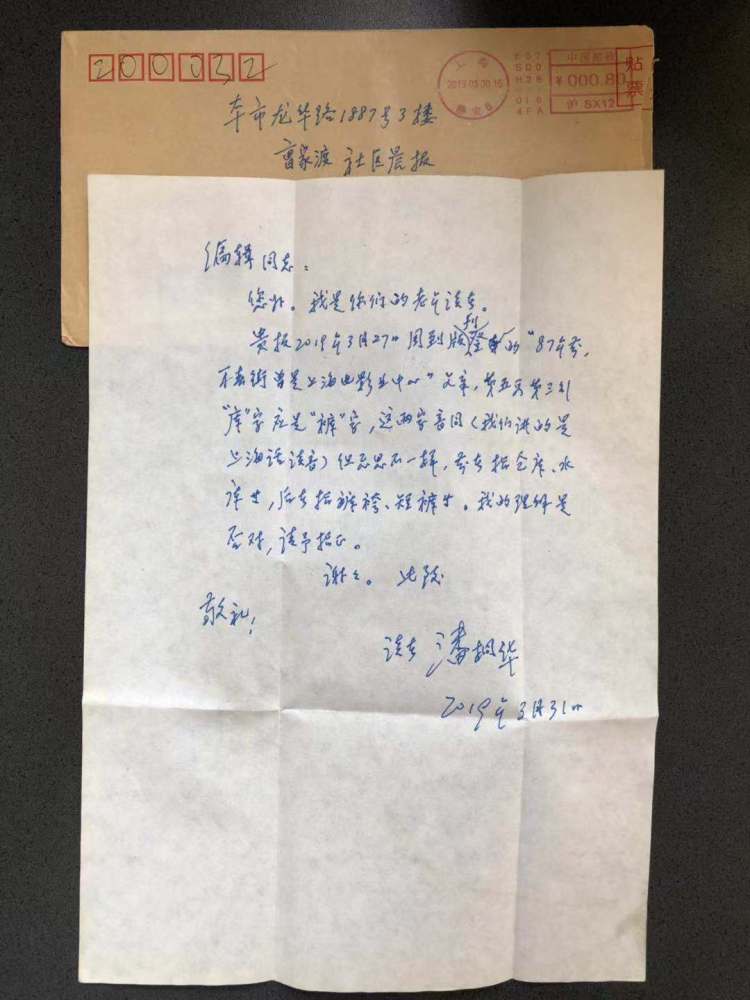 200032
上海
2019.03.30.16
静安6
中国邮政
¥000.80
沪 SX12
贴票
本市龙华路1887号3楼
曹家渡 社区晨报
编辑同志:
您好。我是你们的老年读者。
刊
贵报2019年3月27日周到版登的"87年前,
不在街曾是上海电影业中心"文章,第五页第三列
"库"字应是"裤"字,这两字音同(我们讲的是
上海话读音)但意思不一样,前者指仓库、水
库等,后者指裤袴、短裤等。我的理解是
否对,请予指正。
谢谢。 此致
敬礼!
读者 潘桐华
2019年3月31日